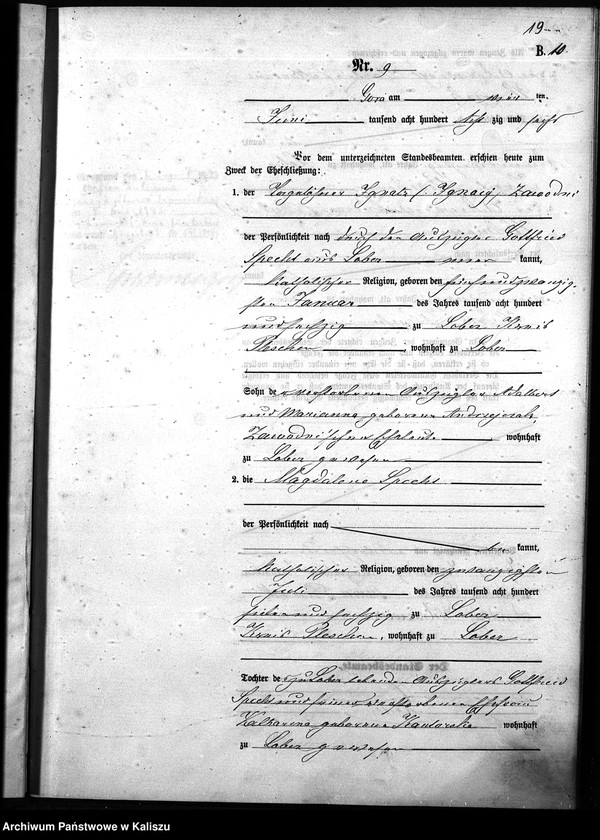 19
B. 10
Nr. 9
Gora am ten
Juni tausend acht hundert acht zig und sechs
Vor dem unterzeichneten Standesbeamten erschien heute zum
Zweck der Eheschließung:
1. der Ignatz (Ignacy) Zawodni
der Persönlichkeit nach durch den Auszügler Gottfried
Specht aus Lober kannt,
katholischer Religion, geboren den fünfundzwanzig-
sten Januar des Jahres tausend acht hundert
undsechzig zu Lober Kreis
Pleschen, wohnhaft zu Lober
Sohn de verstorbenen Auszügler Adalbert
und Marianna geborene
Zawodni'schen Eheleute wohnhaft
zu Lober gewesen
2. die Magdalena Specht
der Persönlichkeit nach
be kannt,
katholischer Religion, geboren den zwanzigsten
Juli des Jahres tausend acht hundert
sieben und sechzig zu Lober
Kreis Pleschen, wohnhaft zu Lober
Der Standesbeamte.
Tochter de zu Lober lebenden Auszüglers Gottfried
Specht und seiner verstorbenen Ehefrau
Katharina geborene wohnhaft
zu Lober gewesen
Archiwum Państwowe w Kaliszu